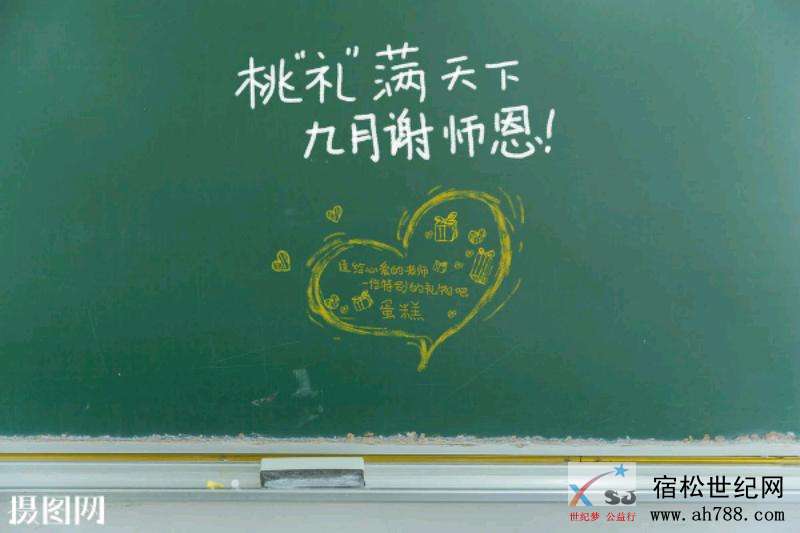 桃“礼”满天下
九月谢师恩!
送给心爱的老师
一份特别的礼物吧
蛋糕
摄图网
XSJ
世纪梦 公益行
宿松世纪网
www.ah788.com